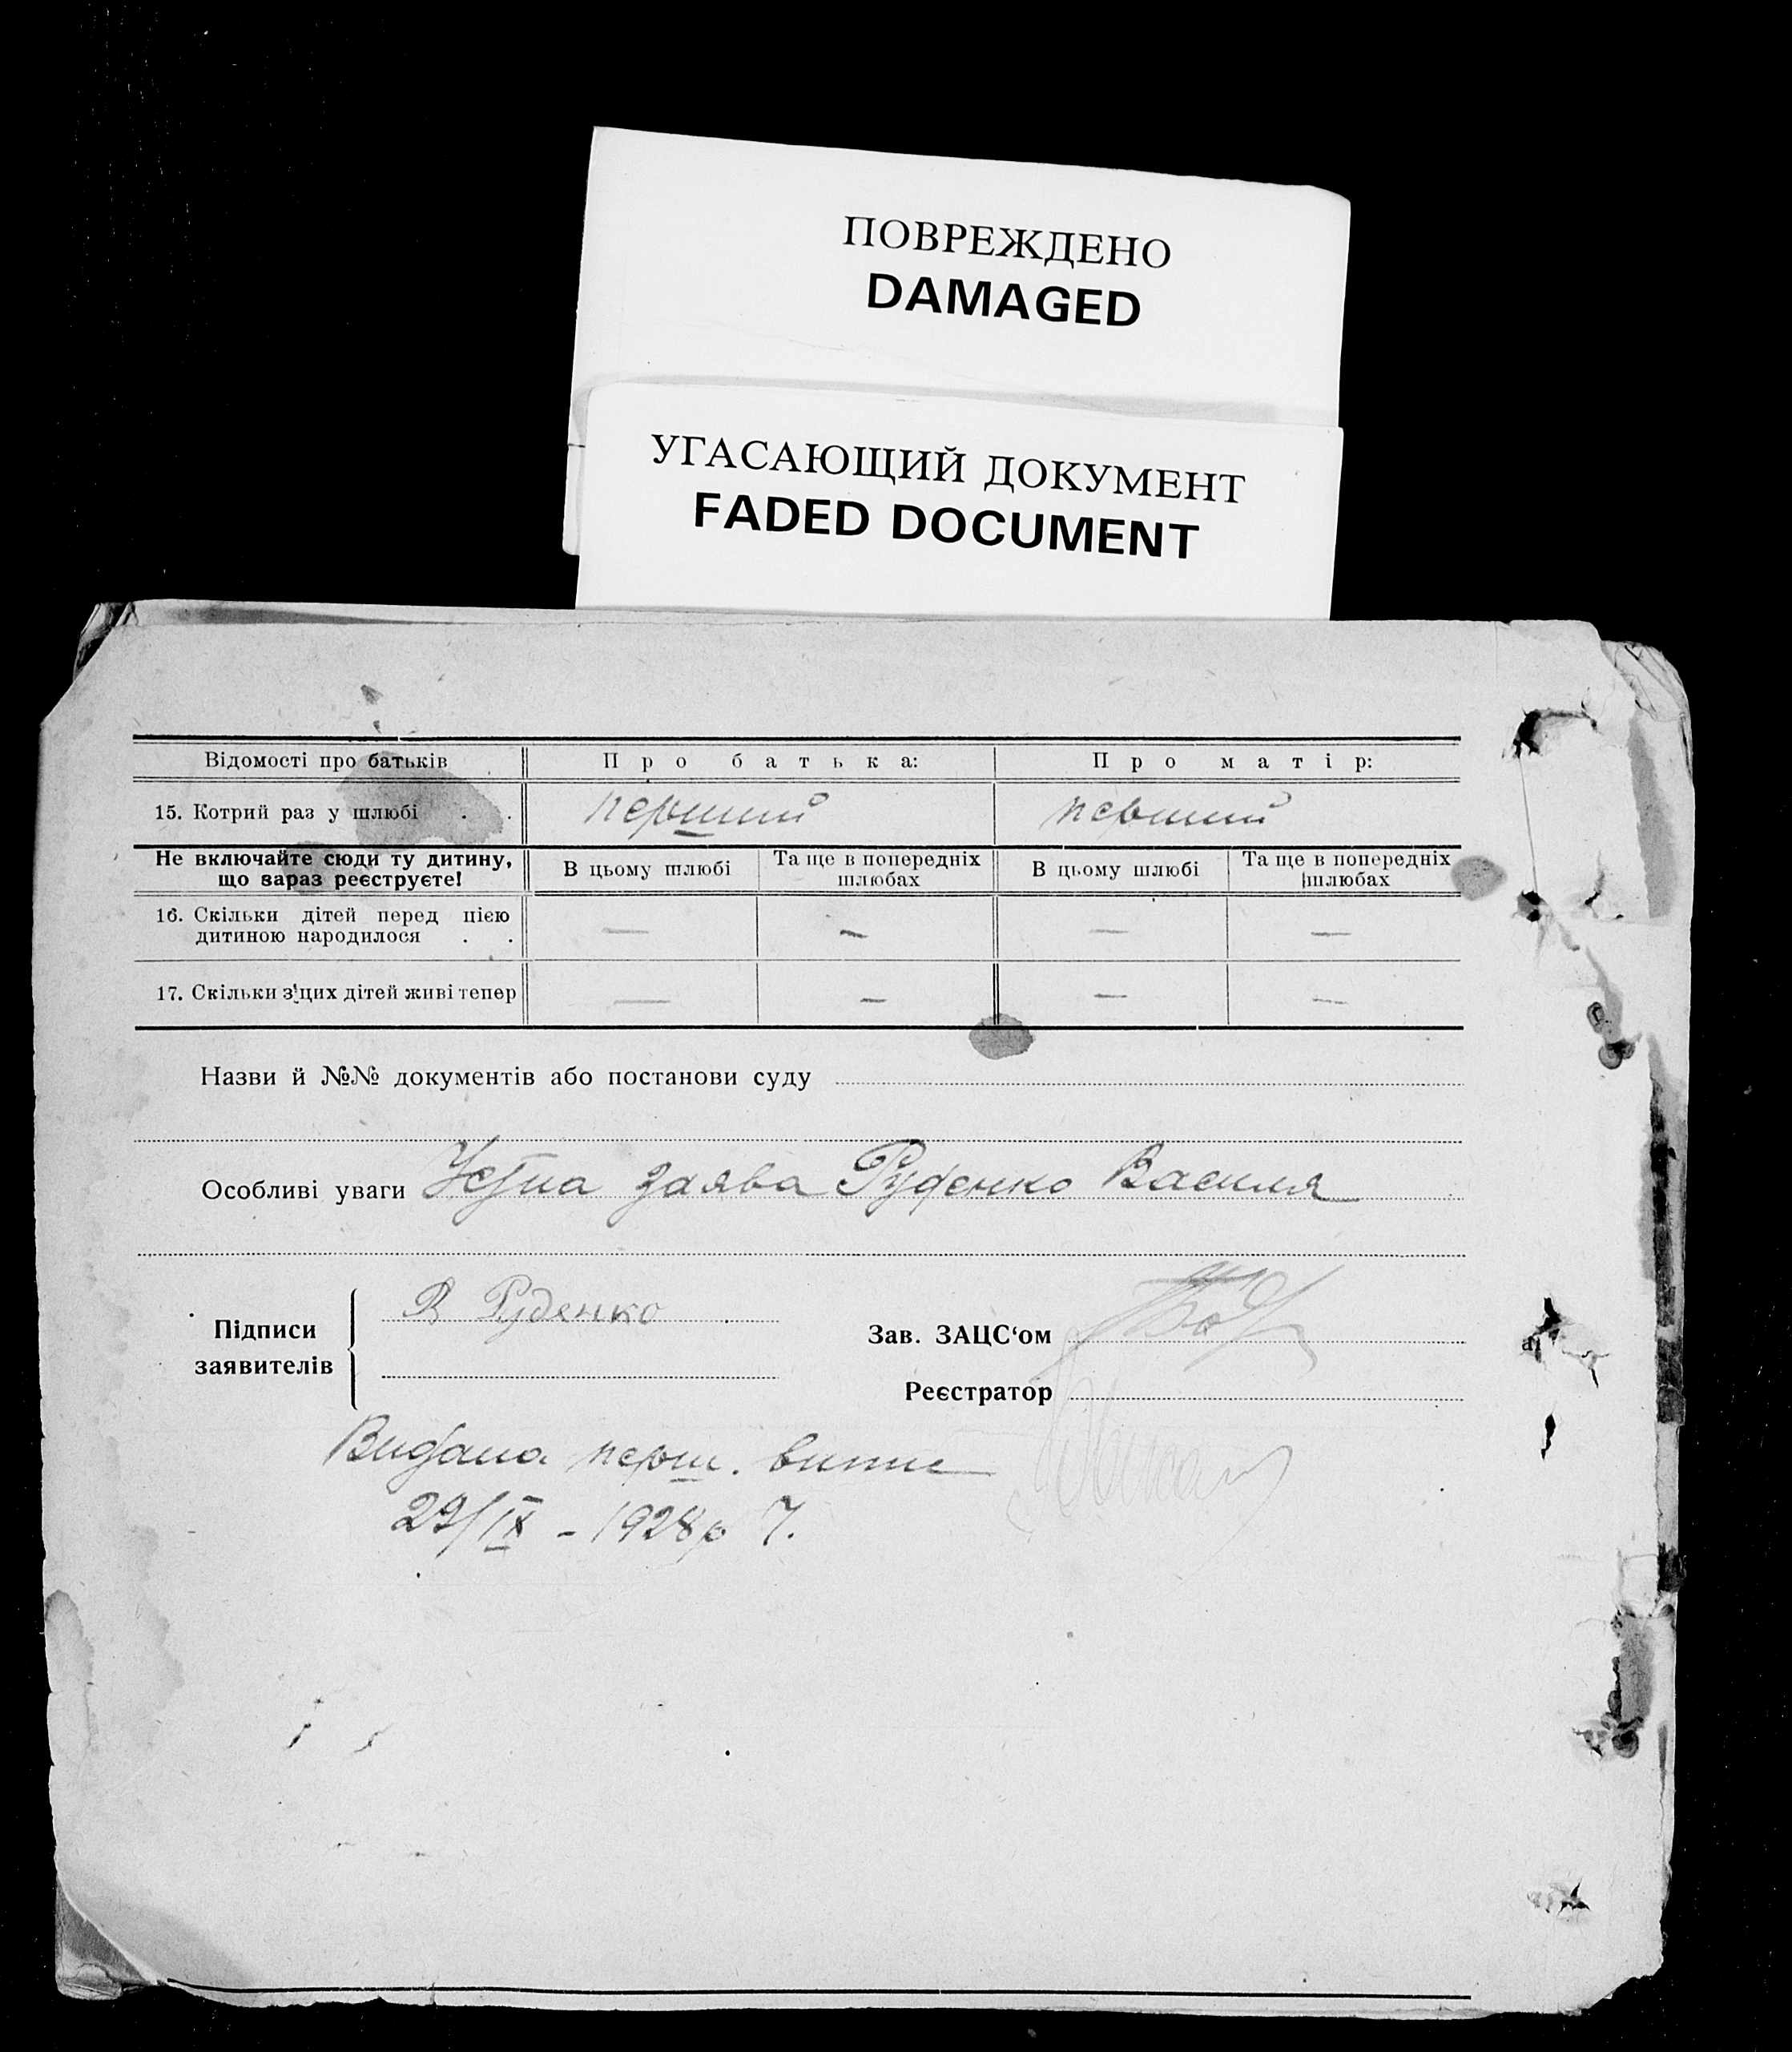 ПОВРЕЖДЕНО
DAMAGED
УГАСАЮЩИЙ ДОКУМЕНТ
FADED DOCUMENT
Відомості про батьків Про батька: Про матір:
15. Котрий раз у шлюбі . . перший певший
Не включайте сюди ту дитину, що зараз реєструєте! В цьому шлюбі Та ще в попередніх шлюбах В цьому шлюбі Та ще в попередніх шлюбах
16. Скільки дітей перед цією дитиною народилося . . — — — —
17. Скільки з'цих дітей живі тепер — — — —
Назви й №№ документів або постанови суду
Особливі уваги Устна заява Руденко Василя
Підписи заявителів В Руденко
Зав. ЗАЦС‘ом
Реєстратор
Видана перш. випис
29/IX - 1928р